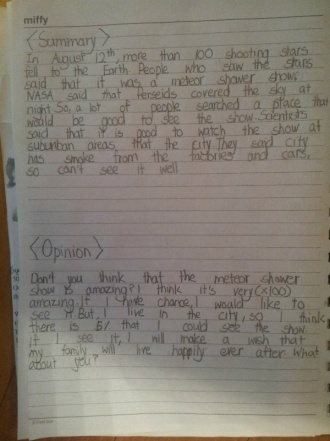 miffy
<Summary>
In August 12th, more than 100 shooting stars
fell to the Earth. People who saw the stars
said that it was a meteor shower show.
NASA said that Perseids covered the sky at
night. So, a lot of people searched a place that
would be good to see the show. Scientists
said that it is good to watch the show at
suburban areas, that the city. They said city
has smoke from the factories and cars,
so can't see it well
<Opinion>
Don't you think that the meteor shower
show is amazing? I think it's very(×100)
amazing. If I have chance, I would like to
see it. But, I live in the city, so I think
there is 5% that I could see the show.
If I see it, I will make a wish that
my family will live happily ever after. What
about you?